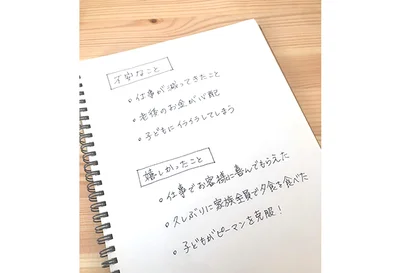 不安なこと
○仕事が減ってきたこと
○老後のお金が心配
○子どもにイライラしてしまう
嬉しかったこと
○仕事でお客様に喜んでもらえた
○久しぶりに家族全員で夕食を食べた
○子どもがピーマンを克服!